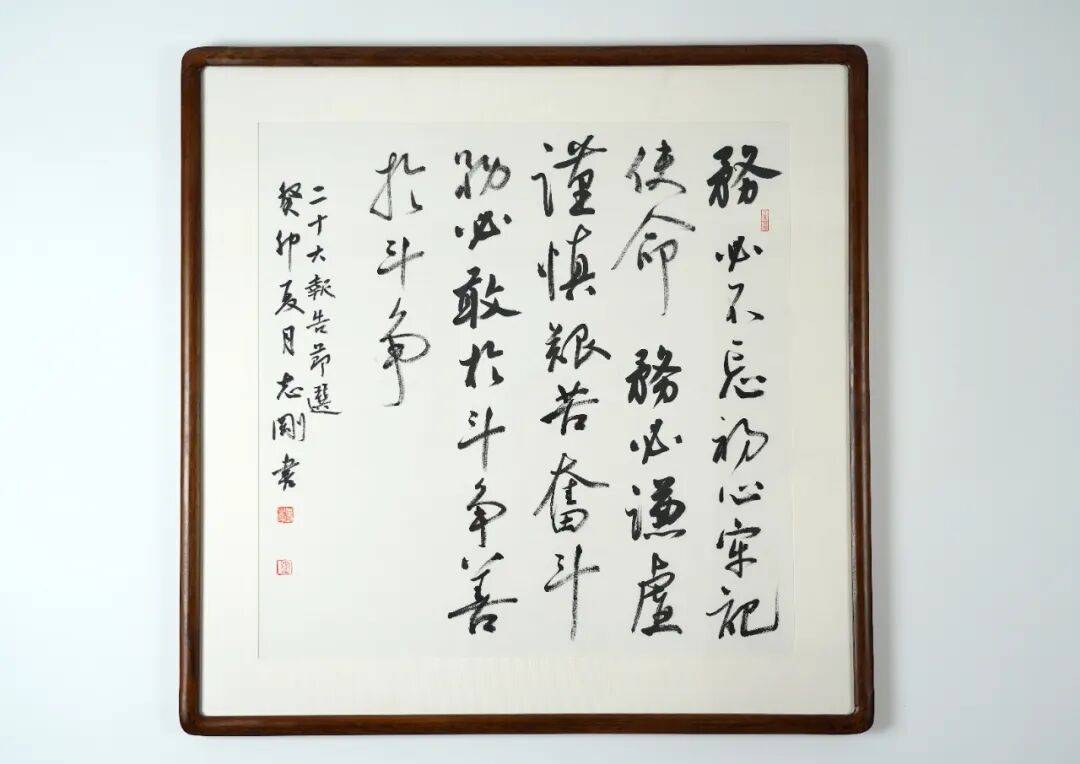 務必不忘初心牢記
使命務必謙虛
謹慎艱苦奮斗
務必敢於斗争善
於斗争
二十大報告節選
癸卯夏月志剛書